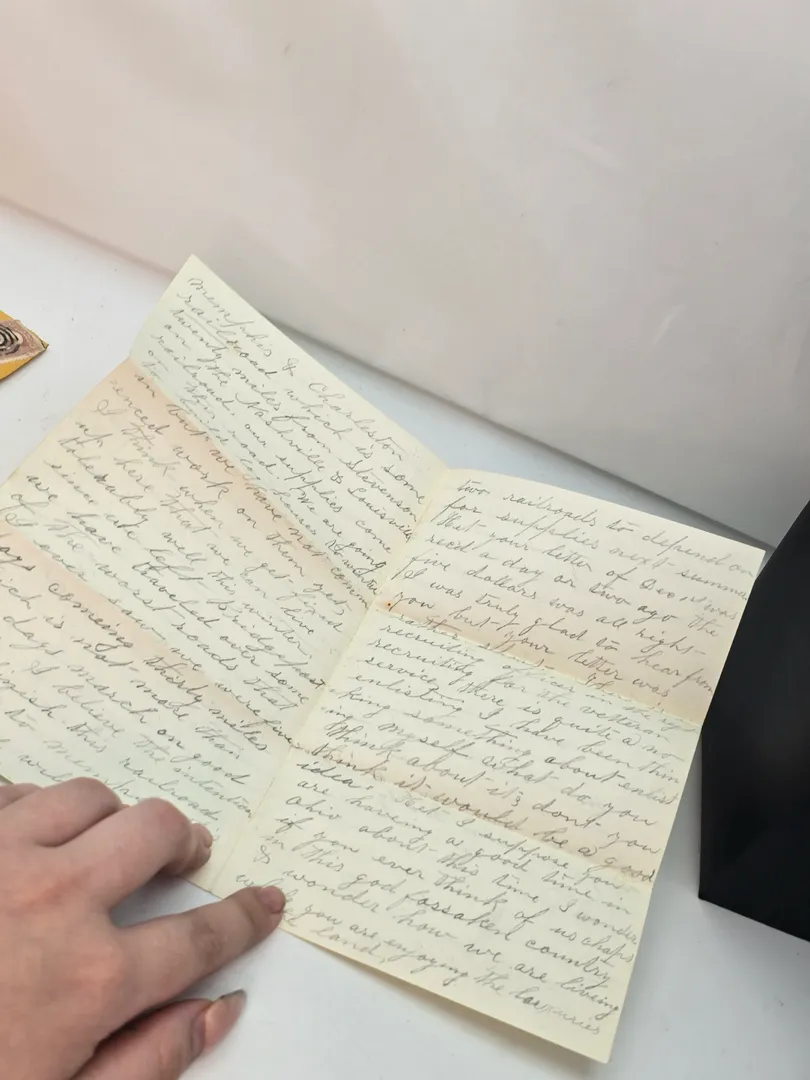 memphis & Charleston
railroad which is some
twenty miles from Stevenson
on the Nashville & Louisville
railroad. our supplies come
on this road we are going
in but we have not
menced work on them yet
I think when we get fixed
up here that we can live
tolerably well this winter
since we left Bridgeport
we have traveled over some
of the worst roads that
I ever saw we were five
days comeing thirty miles
which is not more than
days march on good
I believe the intention
finish this railroad
to memphis
two railroads to depend on
for supplies next summer
that your letter of Dec was
recd a day or two ago the
five dollars was all right
I was truly glad to hear from
you but your letter was
rather
recruiting officer in
recruiting for the vetteran
service there is quite a no
enlisting I have been thin
king something about enlist
ing myself what do you
think about it dont you
think it would be a good
idea. I suppose you
are having a good time in
Ohio about this time I wonder
if you ever think of us chaps
in this god fossaken country
& wonder how we are living
while you are enjoying the luxuries
land